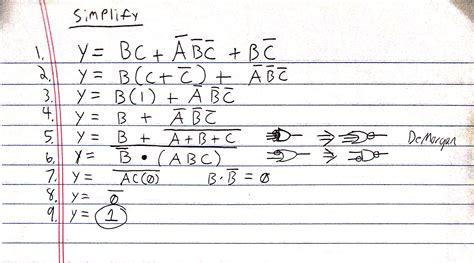 Simplify
1. y = BC + A̅ B̅ C̅ + BC̅
2. y = B(C + C̅) + A̅ B̅ C̅
3. y = B(1) + A̅ B̅ C̅
4. y = B + A̅ B̅ C̅
5. y = B + \overline{A + B + C} ⇒ DeMorgan
6. y = \overline{B̅ • (ABC)} ⇒
7. y = \overline{AC(0)} B · B̅ = 0
8. y = \overline{0}
9. y = 1